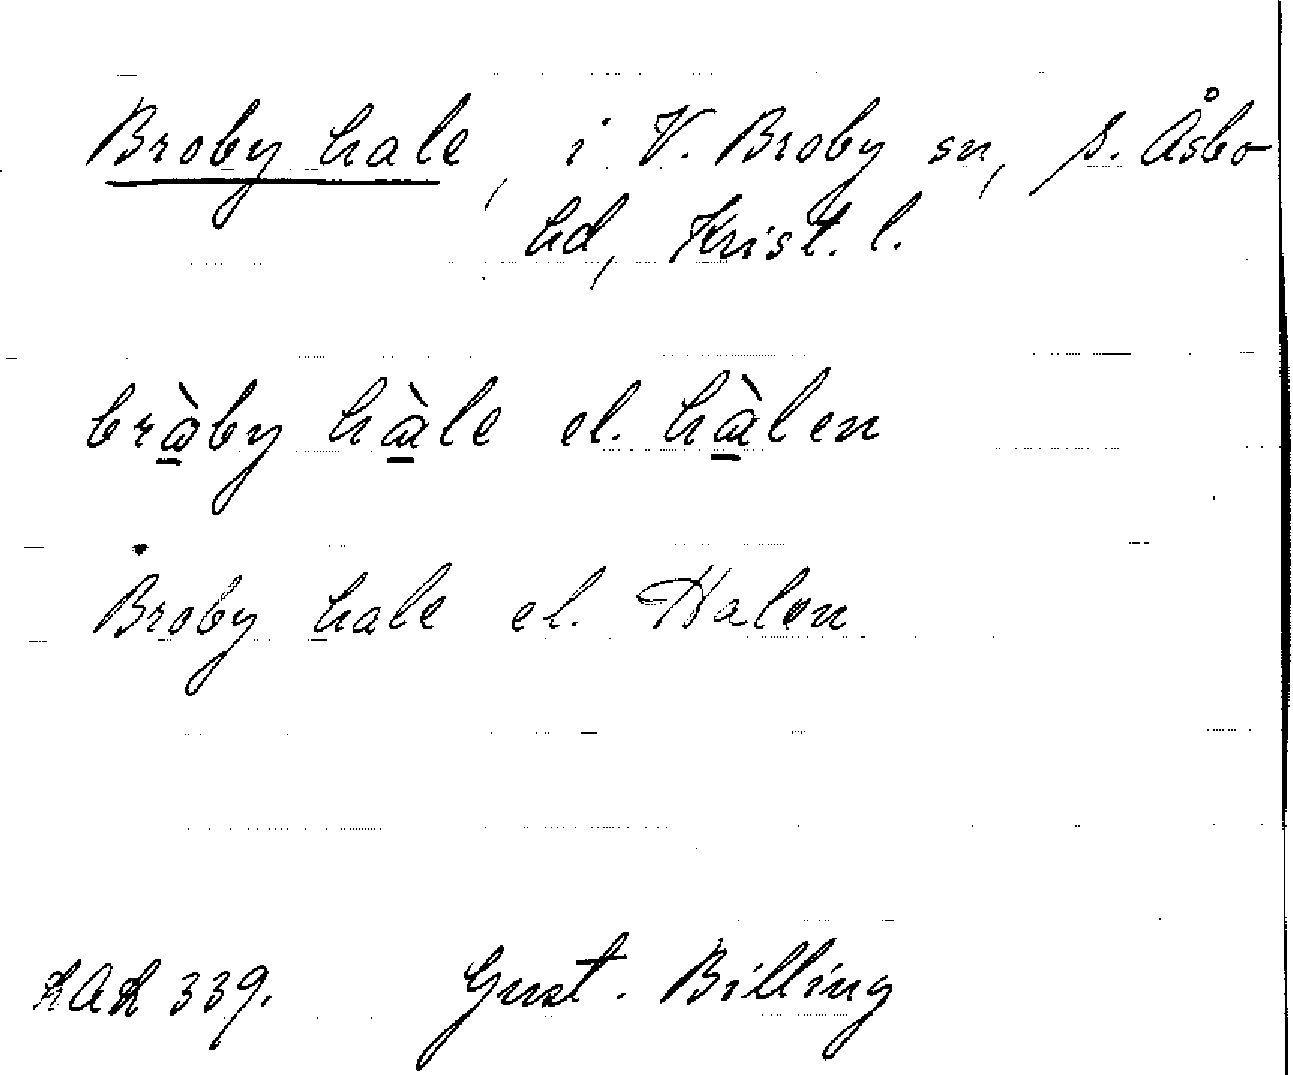 Broby hale, i V. Broby sn, S. Åsbo
hd, Krist. l.
bràby hàle el. hàlen
Broby hale el. Halen
LAL 339. Gust. Billing